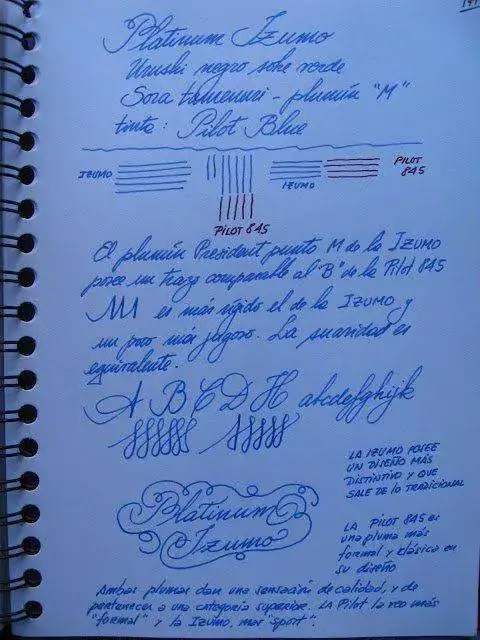 Platinum Izumo
Urushi negro sobre verde
Sora tamenuri - plumín "M"
tinta: Pilot Blue
IZUMO
IZUMO
PILOT
845
PILOT 845
El plumín President punto M de la IZUMO
posee un trazo comparable al "B" de la Pilot 845
es más rígido el de la IZUMO y
un poco más jugoso. La suavidad es
equivalente.
A B C D H abcdefghijk
LA IZUMO POSEE
UN DISEÑO MÁS
DISTINTIVO Y QUE
SALE DE LO TRADICIONAL
Platinum
Izumo
LA PILOT 845 es
una pluma más
formal y clásica en
su diseño
Ambas plumas dan una sensación de calidad, y de
pertenecer a una categoría superior. LA Pilot la veo más
"formal" y la IZUMO, más "sport".